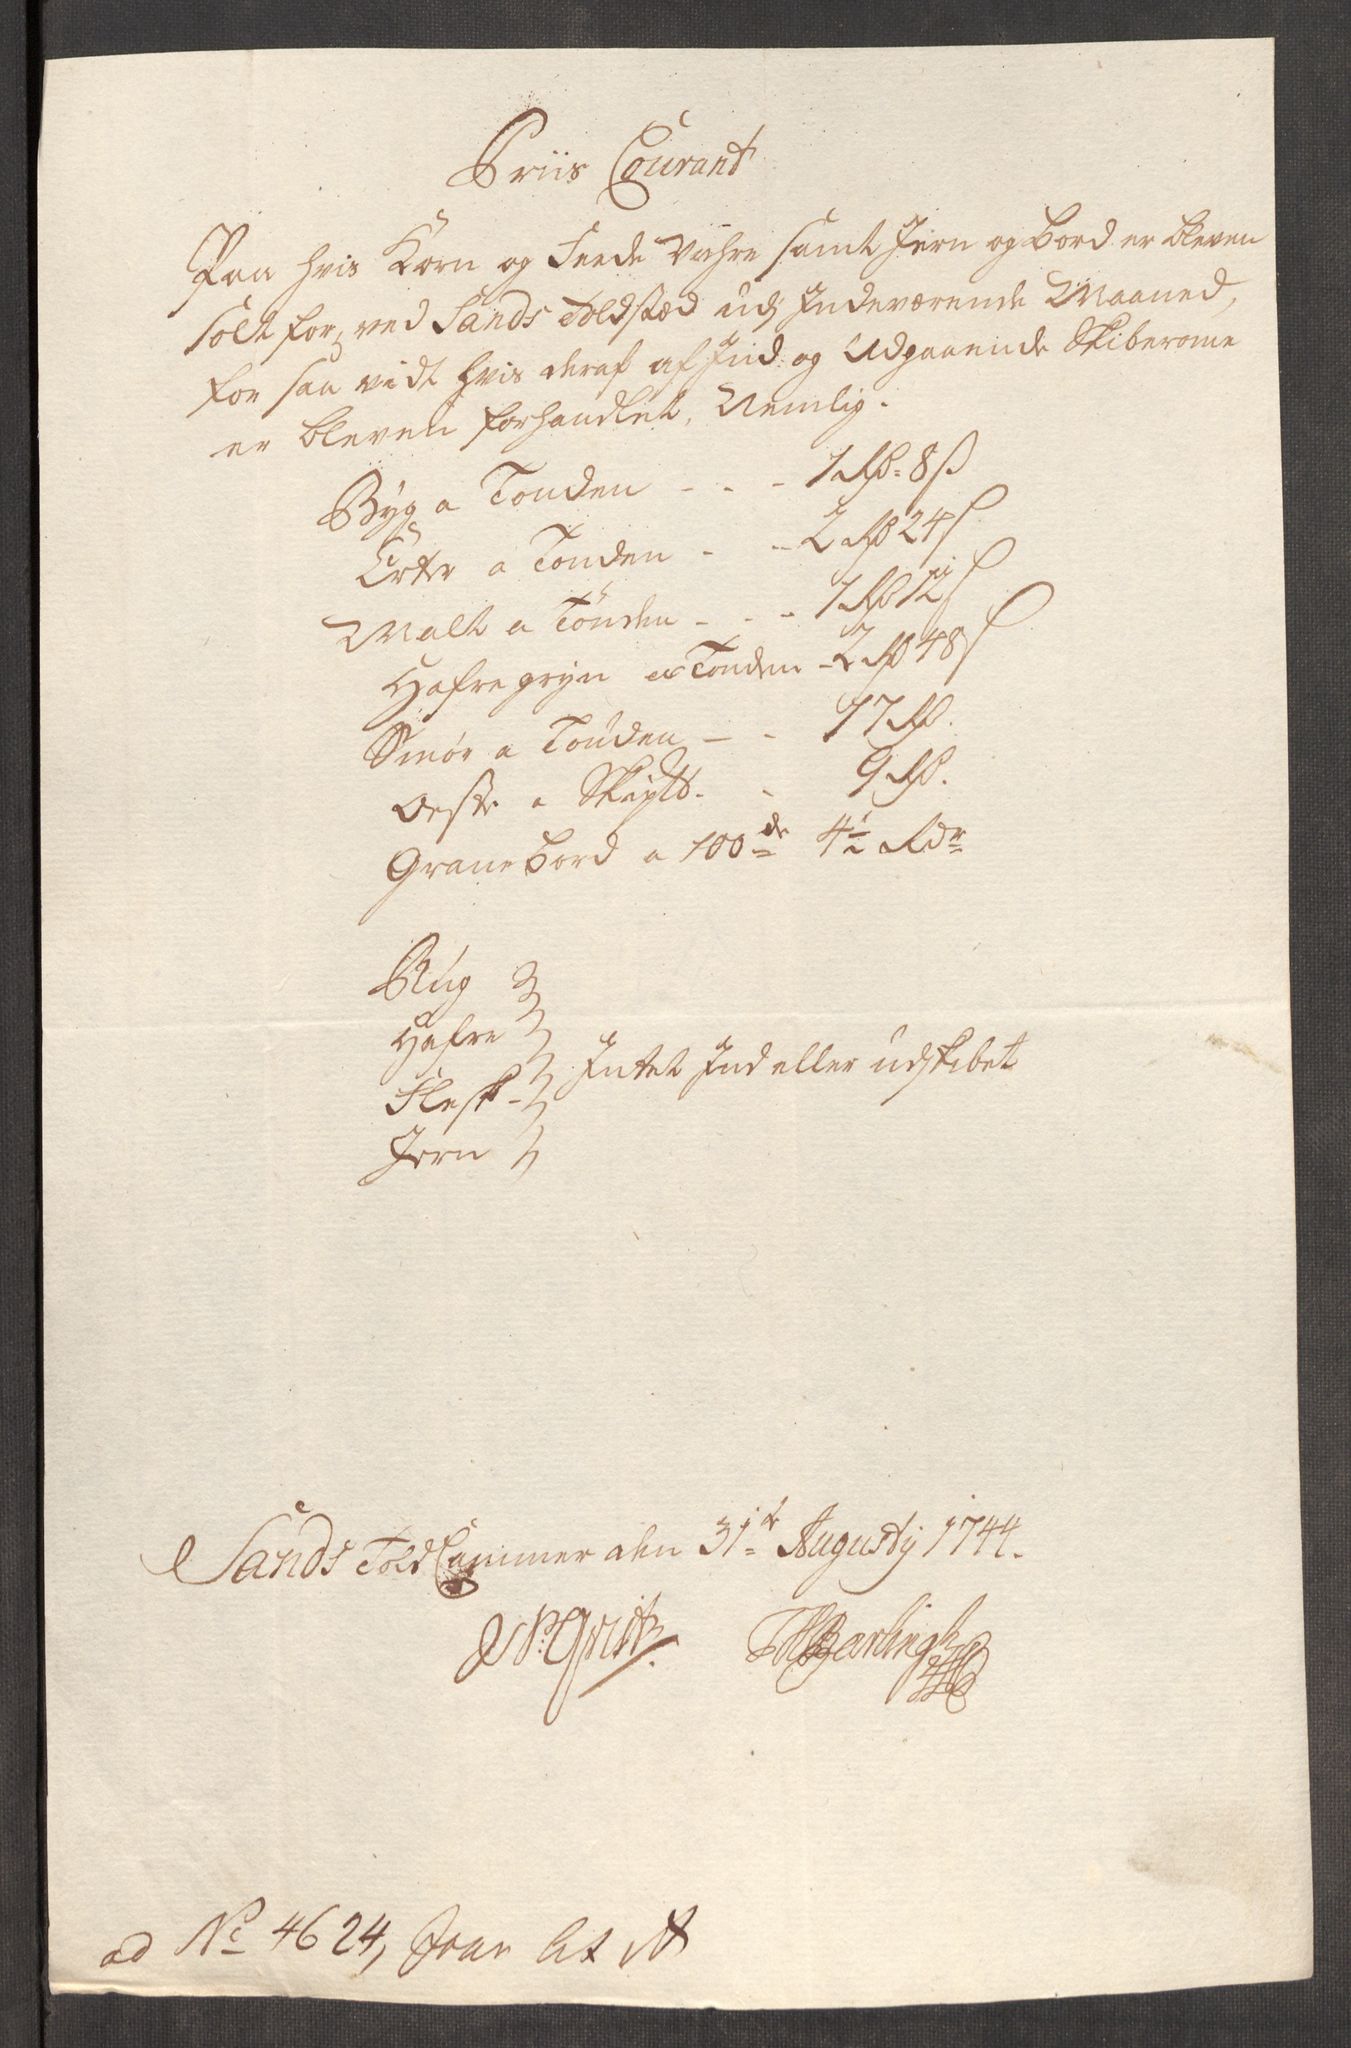 Priis Courant
Paa hvis Korn og Feede Vahre samt Jern og bord er bleven
solt for, ved Sands Toldstæd udj Indeværende Maaned,
for saa vidt hvis deraf af Ind og Udgaaende Skiberome
er bleven forhandlet, Nemlig.
Byg a Tønden - - - 1 Rd. 8 s
Erter a Tønden - - 2 Rd 24 s
Malt a Tønden - - - 1 Rd 12 s
Hafregryn a Tønden - 2 Rd 48 s
Smør a Tønden - - 11 Rd.
Oeste a Skip℔. - 9 Rd.
Grane bord a 100de 4½ Rdr
Rug
Hafre
Flesk - Intet Ind eller udskibet
Jern
Sands Told Cammer den 31te Augustij 1744.
Barlingh
ad No 4624, Lit A